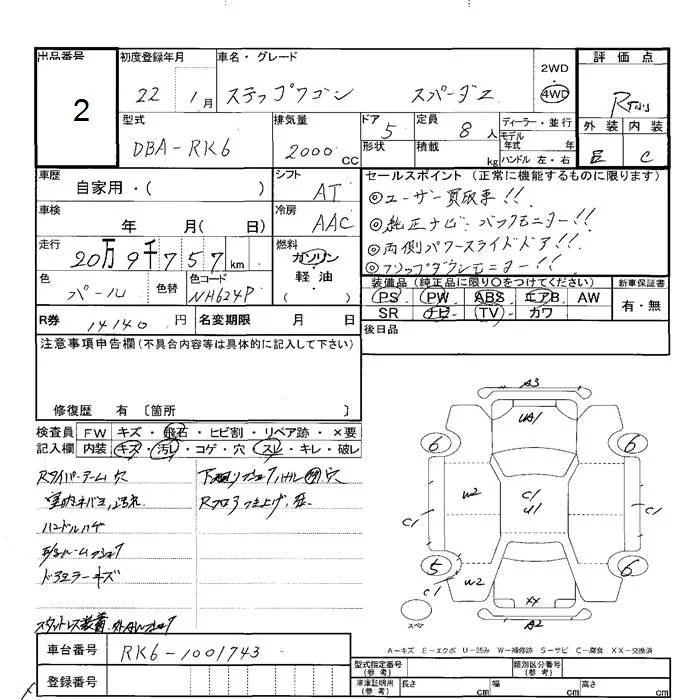 出品番号 初度登録年月 車名・グレード 評価点
2 22年 1月 ステップワゴン スパーダZ 2WD 4WD
型式 排気量 ドア 定員 ディーラー・並行 外装 内装
DBA-RK6 2000cc 5 8人 モデル年式 年 C
形状 積載 kg ハンドル 左・右
車歴 シフト セールスポイント (正常に機能するものに限ります)
自家用・( ) AT ◎ユーザー買取車!!
車検 冷房 ◎純正ナビ・バックモニター!!
年 月( 日) AAC ◎両側パワースライドドア!!
走行 燃料 ◎フリップダウンモニター!!
20万9千757km ガソリン 軽油 ( )
色 色替 色コード 装備品(純正品に限り○をつけてください) 新車保証書
パール NH624P PS PW ABS エアB AW 有・無
SR ナビ TV カワ
R券 14140円 名変期限 月 日 後日品
注意事項申告欄(不具合内容等は具体的に記入して下さい)
修復歴 有 〔箇所 〕
検査員 FW キズ・飛石・ヒビ割・リペア跡・×要
記入欄 内装 キズ・汚レ・コゲ・穴・スレ・キレ・破レ
Rタイバーアーム穴
ハンドルハゲ
ドアミラーキズ
A3
UA1
6 6
W2 C1 U1 C1 C1
5 6
C1 W2 XX
スペア A2
A-キズ E-エクボ U-凹み W-補修跡 S-サビ C-腐食 XX-交換済
車台番号 RK6-1001743
登録番号
型式指定番号(参考) 類別区分番号(参考)
車庫証明用(参考) 長さ cm 幅 cm 高さ cm